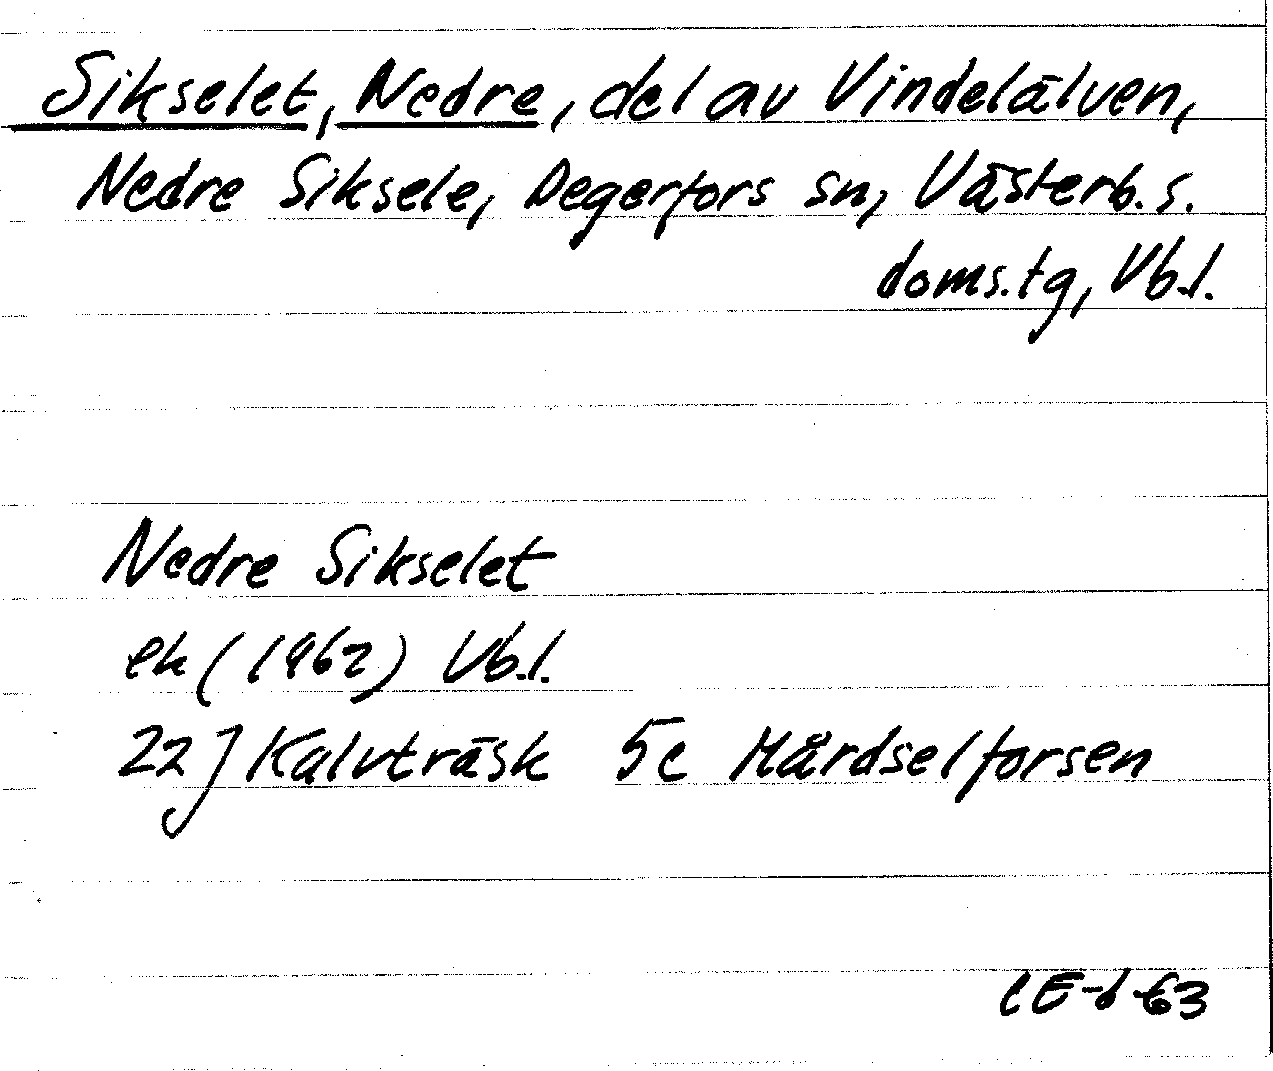 Sikselet, Nedre, del av Vindelälven,
Nedre Siksele, Degerfors sn, Västerb. s.
doms.tg, Vb.l.
Nedre Sikselet
ek (1962) Vb.l.
22 J Kalvträsk 5c Mårdselforsen